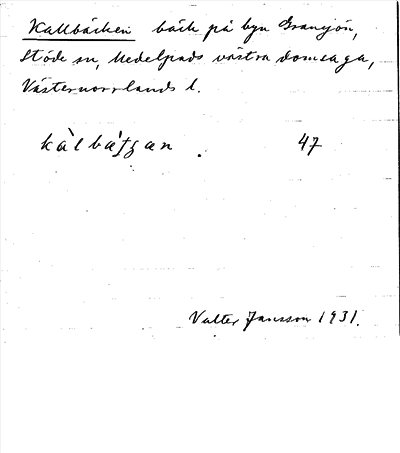 Kallbäcken bäck på byn Gransjön,
Stöde sn, Medelpads västra domsaga,
Västernorrlands l.
kàlbäʃgan . 47
Valter Jansson 1931.